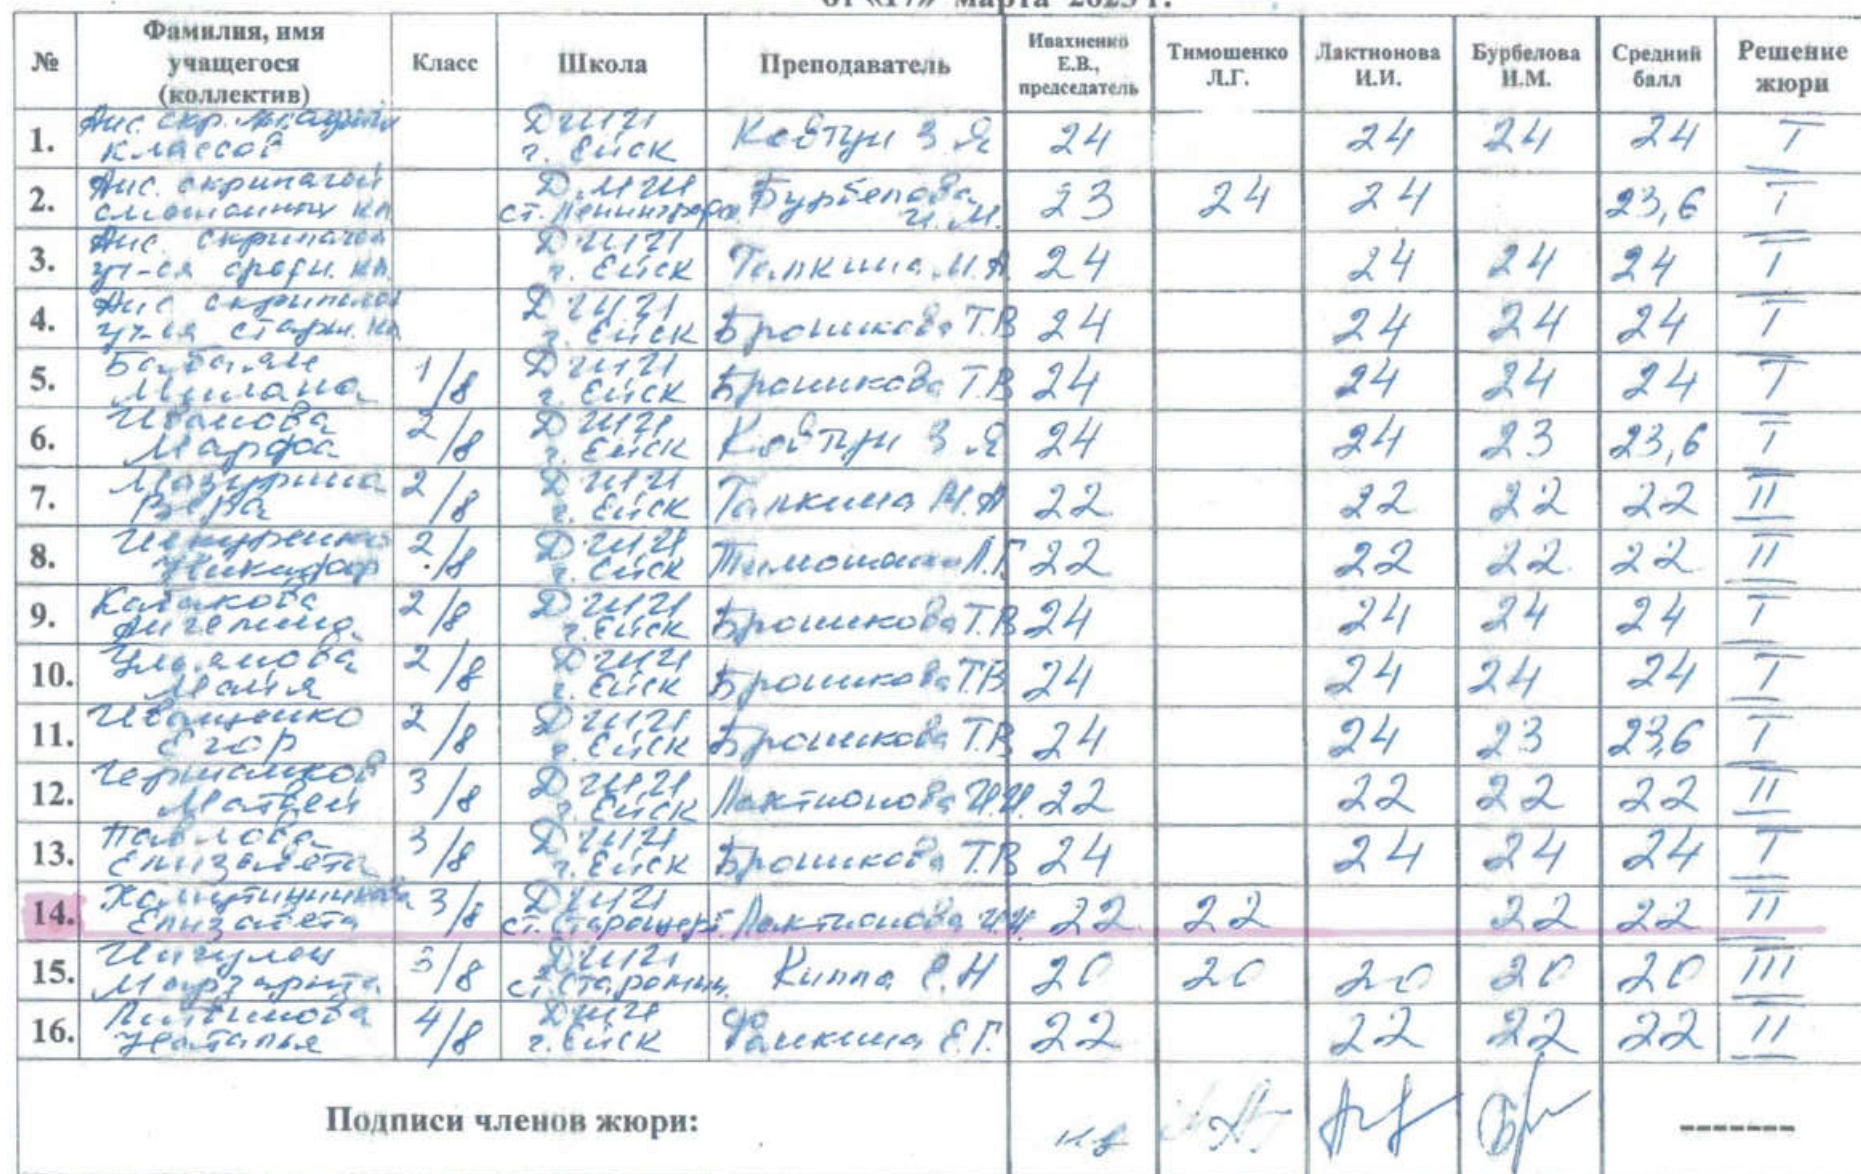 от «17» марта 2023 г.
№ Фамилия, имя учащегося (коллектив) Класс Школа Преподаватель Ивахненко Е.В., председатель Тимошенко Л.Г. Лактионова И.И. Бурбелова И.М. Средний балл Решение жюри
1. Анс. скр. младших классов ДШИ г. Ейск Ковтун З Я 24 24 24 24 I
2. Анс. скрипачей смешанных кл ДМШ ст. Ленинградск. Бурбелова И.М. 23 24 24 23,6 I
3. Анс. скрипачей уч-ся средн. кл. ДШИ г. Ейск Галкина М.А. 24 24 24 24 I
4. Анс скрипачей уч-ся старш. кл ДШИ г. Ейск Брошикова Т.В 24 24 24 24 I
5. Милана 1/8 ДШИ г. Ейск Брошикова Т.В 24 24 24 24 I
6. Иванова Марфа 2/8 ДШИ г. Ейск Ковтун З Я 24 24 23 23,6 I
7. Мазурина Вера 2/8 ДШИ г. Ейск Галкина М.А 22 22 22 22 II
8. 2/8 ДШИ г. Ейск Тимошенко Л.Г. 22 22 22 22 II
9. Ангелина 2/8 ДШИ г. Ейск Брошикова Т.В 24 24 24 24 I
10. Ульянова 2/8 ДШИ г. Ейск Брошикова Т.В 24 24 24 24 I
11. Иващенко Егор 2/8 ДШИ г. Ейск Брошикова Т.В 24 24 23 23,6 I
12. Матвей 3/8 ДШИ г. Ейск Лактионова И.И. 22 22 22 22 II
13. Павлова Елизавета 3/8 ДШИ г. Ейск Брошикова Т.В 24 24 24 24 I
14. Елизавета 3/8 ДШИ ст. Старощерб. Лактионова И.И. 22 22 22 22 II
15. Маргарита 3/8 ДШИ ст. Староминск. Киппа Е.Н 20 20 20 20 20 III
16. Наталья 4/8 ДШИ г. Ейск Е.Г. 22 22 22 22 II
Подписи членов жюри: -------